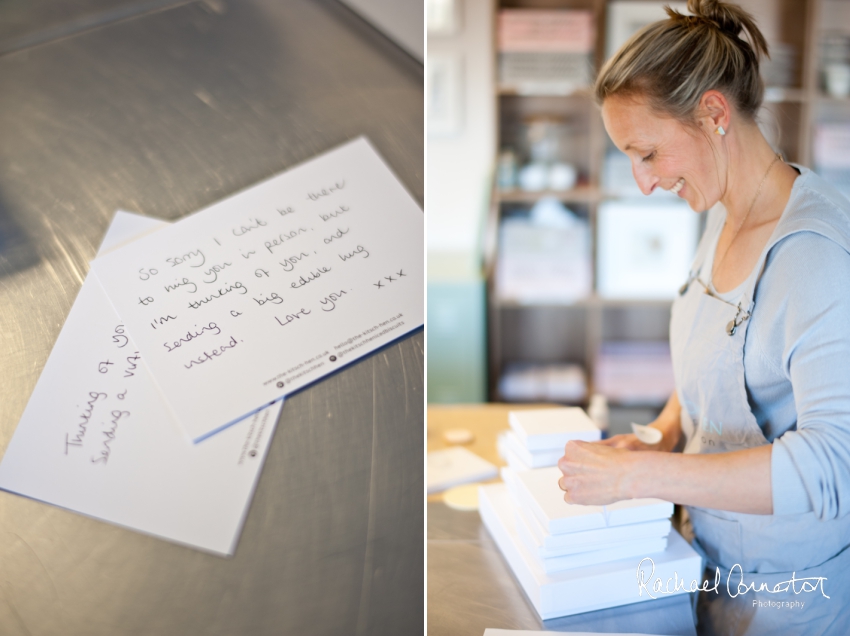 So sorry I can't be there
to hug you in person, but
I'm thinking of you, and
sending a big edible hug
instead. Love you. xxx
www.the-kitsch-hen.co.uk hello@the-kitsch-hen.co.uk
Thinking of
Sending a
Rachael Connerton
Photography